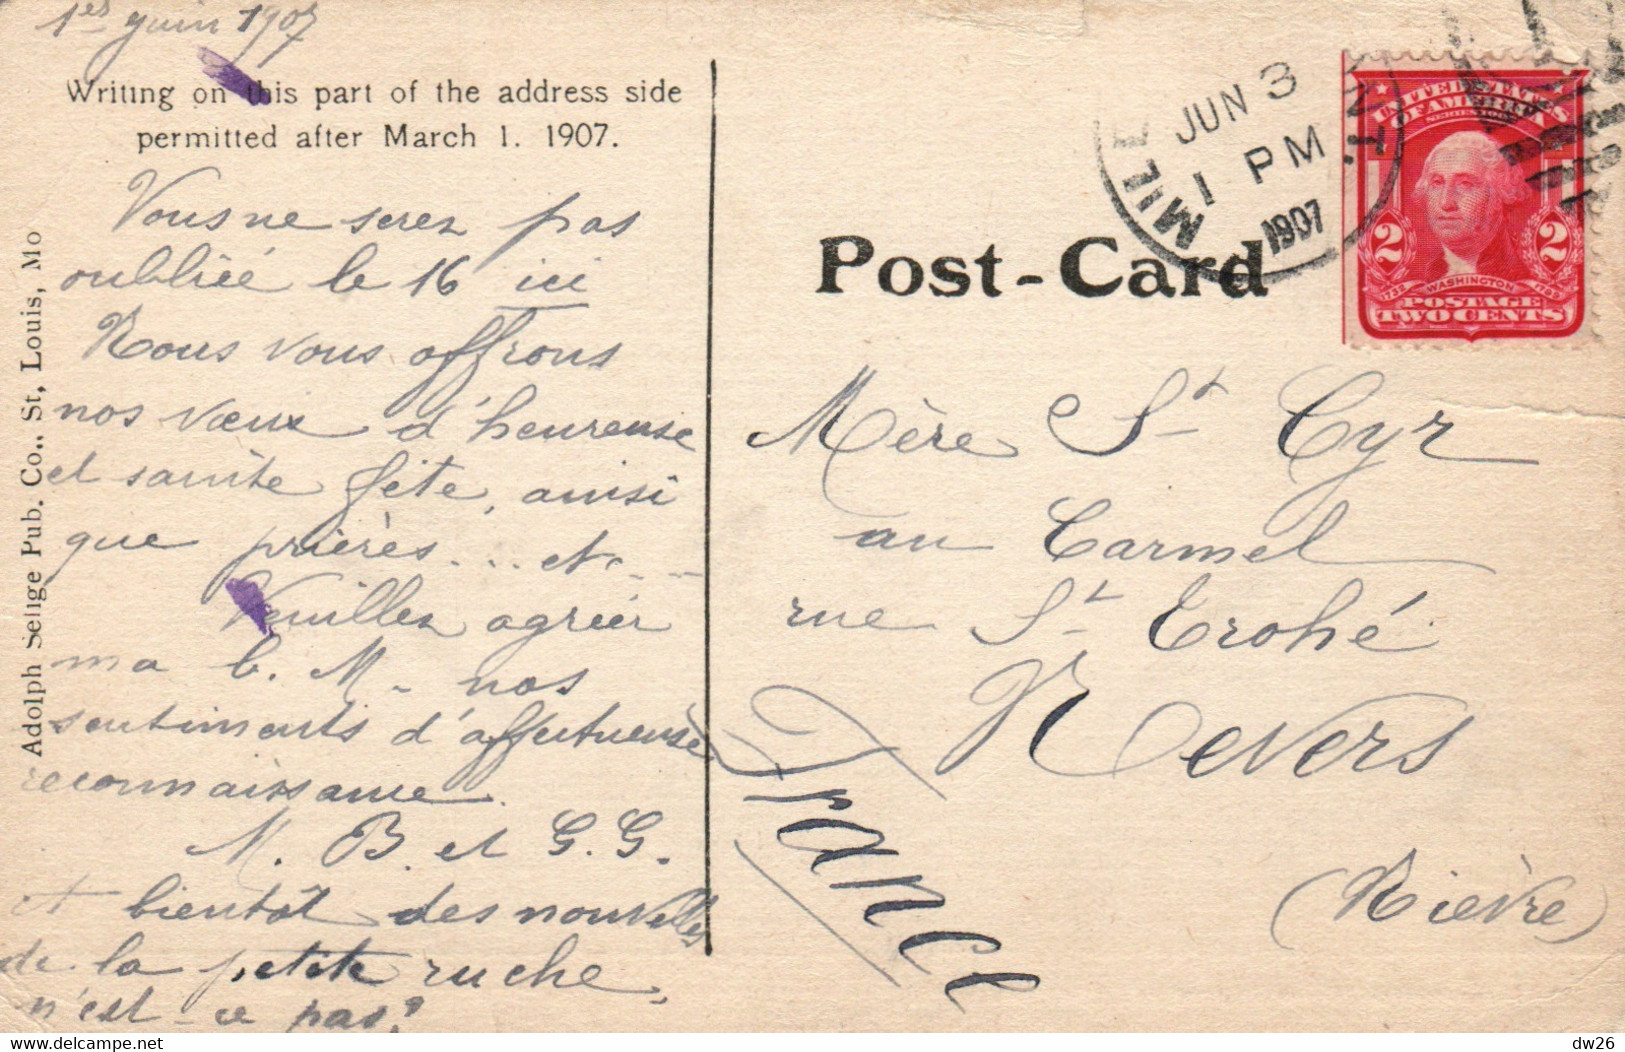 1er juin 1907
Writing on this part of the address side
permitted after March 1. 1907.
Vous ne serez pas
oubliée le 16 ici
Nous vous offrons
nos vœux d'heureuse
et sainte fête, ainsi
que prières... etc...
Veuillez agréer
ma b. M. nos
sentiments d'affectueuse
reconnaissance.
M. B. et G. G.
et bientôt des nouvelles
de la petite ruche,
n'est-ce pas?
Adolph Selige Pub. Co., St, Louis, Mo
Post-Card
JUN 3
1 PM
1907
MILA
UNITED STATES
OF AMERICA
SERIES 1902
2 2
1732 WASHINGTON 1799
POSTAGE
TWO CENTS
Mère St Cyr
au Carmel
rue St Trohé
Nevers
(Nièvre)
France
www.delcampe.net
dw26